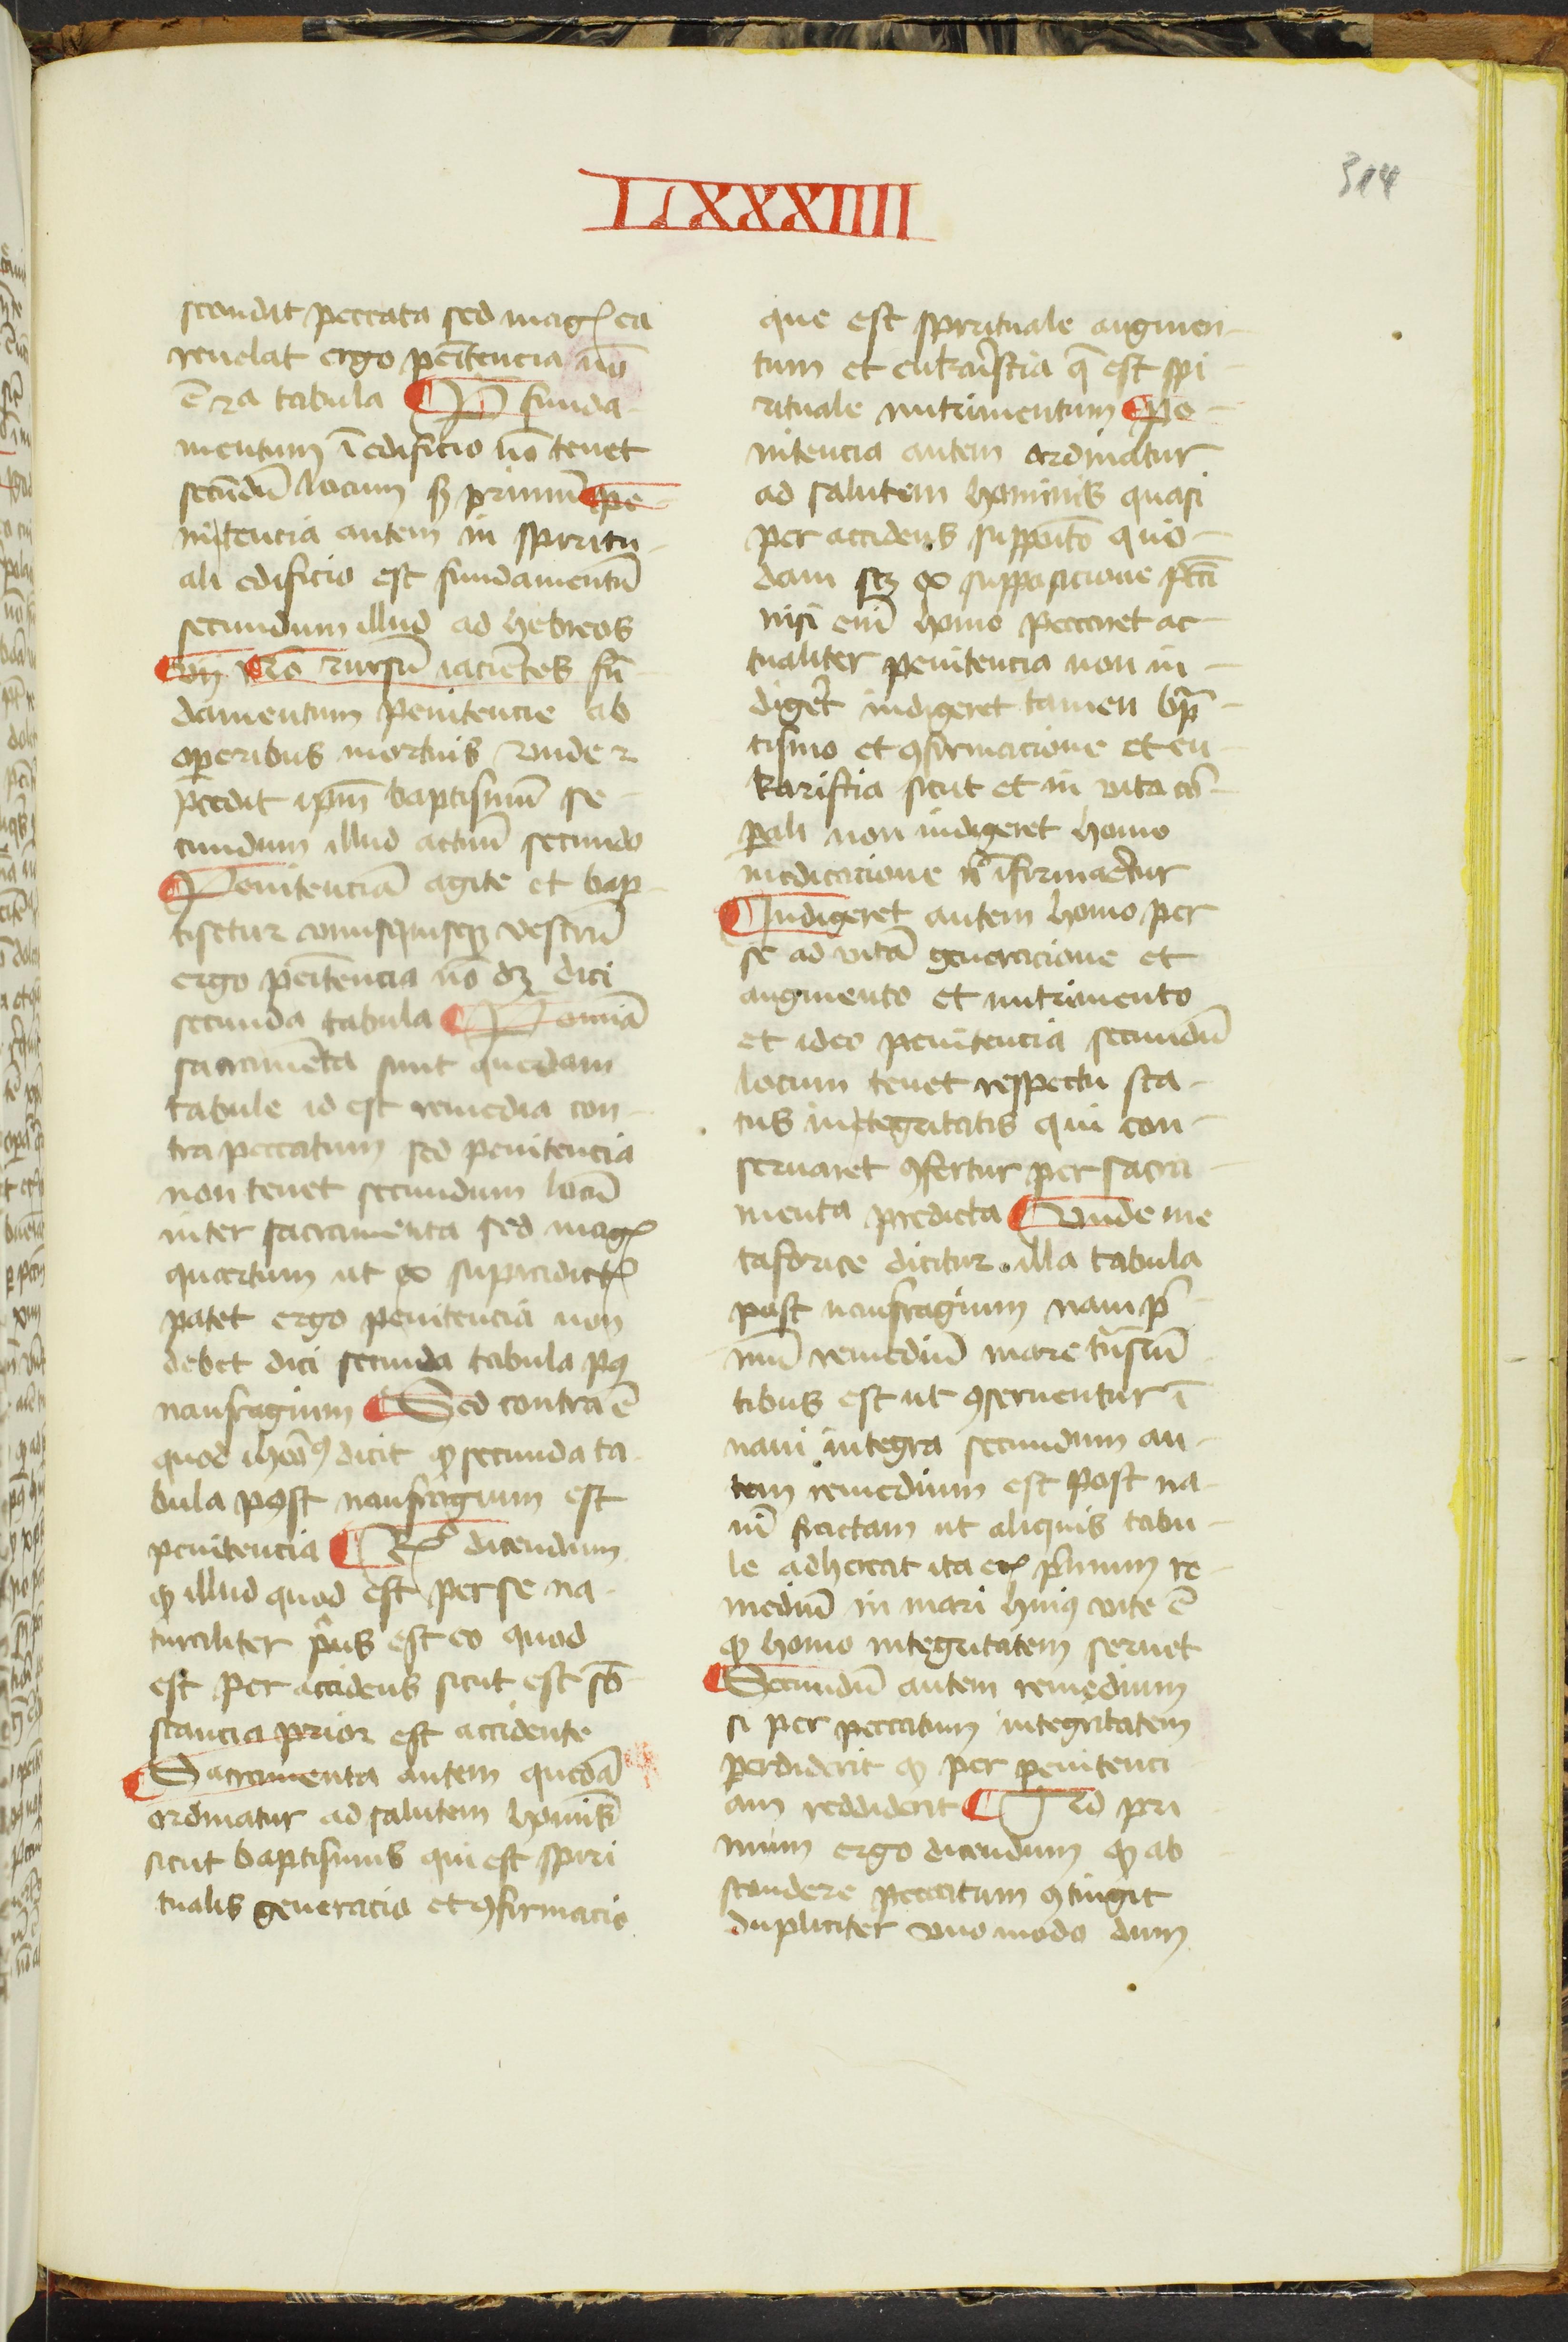 LLXXXIIII
314
scondit peccata sed magꝭ ea
reuelat ergo pe̅itencia no̅
e̅ 2a tabula ¶ P̅ funda-
mentum i̅ edificio no̅ tenet
secu̅du̅ locum sꝫ primu̅ ¶ pe-
nitencia autem in spiritu-
ali edificio est fundamentu̅
secundum illud ad hebreos
¶ No̅ rursu̅ iacie̅tes fu̅-
damentum penitencie ab
operibus mortuis vnde 2
p̅cedit ip̅m baptismu̅ se-
cundum illud actuu̅ secundo
¶ Penitencia̅ agite et bap-
tisetur vnusquisqꝫ vestru̅
ergo pe̅itencia no̅ dꝫ dici
secunda tabula ¶ P omnia̅
sacrame̅ta sunt quedam
tabule id est remedia con-
tra peccatum sed penitencia
non tenet secundum locu̅
inter sacramenta sed magꝭ
quartum ut ex supradictꝭ
patet ergo penitencia non
debet dici secunda tabula pꝰ
naufragium ¶ Sed contra e̅
quod ihe̅oꝰ dicit ꝙ secunda ta-
bula post naufragium est
penitencia ¶ Rꝭ dicendum
ꝙ illud quod est per se na-
turaliter p̅us est eo quod
est per accidens sicut est sb̅-
stancia prior est accidente
¶ Sacramenta autem queda̅
ordinatur ad salutem homi̅s
sicut baptismus qui est spiri
tualis generacio et ꝯfirmacio
que est spirituale augmen-
tum et eukaristia q̅ est spi-
rituale nutrimentum ¶ Pe-
nitencia autem ordinatur
ad salutem hominis quasi
per accidens supposito̅ quo-
dam scꝫ ex supposicione pcti̅
nisi eni̅ homo peccaret ac-
tualiter penitencia non in-
digeret indigeret tamen bap-
tismo et ꝯfirmacione et eu-
karistia sicut et in vita cor-
ꝑali non indigeret homo
medicacione n̅ i̅firmaretur
¶ Indigeret autem homo per
se ad vita̅ generacione et
augmento et nutrimento
et ideo penitencia secundu̅
locum tenet respectu sta-
tus integritatis qui con-
seruaret ꝯfertur per sacra-
menta predicta ¶ Vnde me
taforice dicitur illa tabula
post naufragium nam p̅-
mu̅ remediu̅ mare tra̅seu̅-
tibus est ut ꝯseruentur i̅
naui integra secundum au-
tem remedium est post na-
ui̅ fractam ut aliquis tabu-
le adhereat ita ecꝭ primum re-
mediu̅ in mari huiꝰ vite e̅
ꝙ homo integritatem seruet
¶ Secundu̅ autem remedium
si per peccatum integritatem
perdiderit ꝙ per penitenci
am reddiderit ¶ Ad pri
mum ergo dicendum ꝙ ab
scondere peccatum ꝯtingit
dupliciter vno modo dum